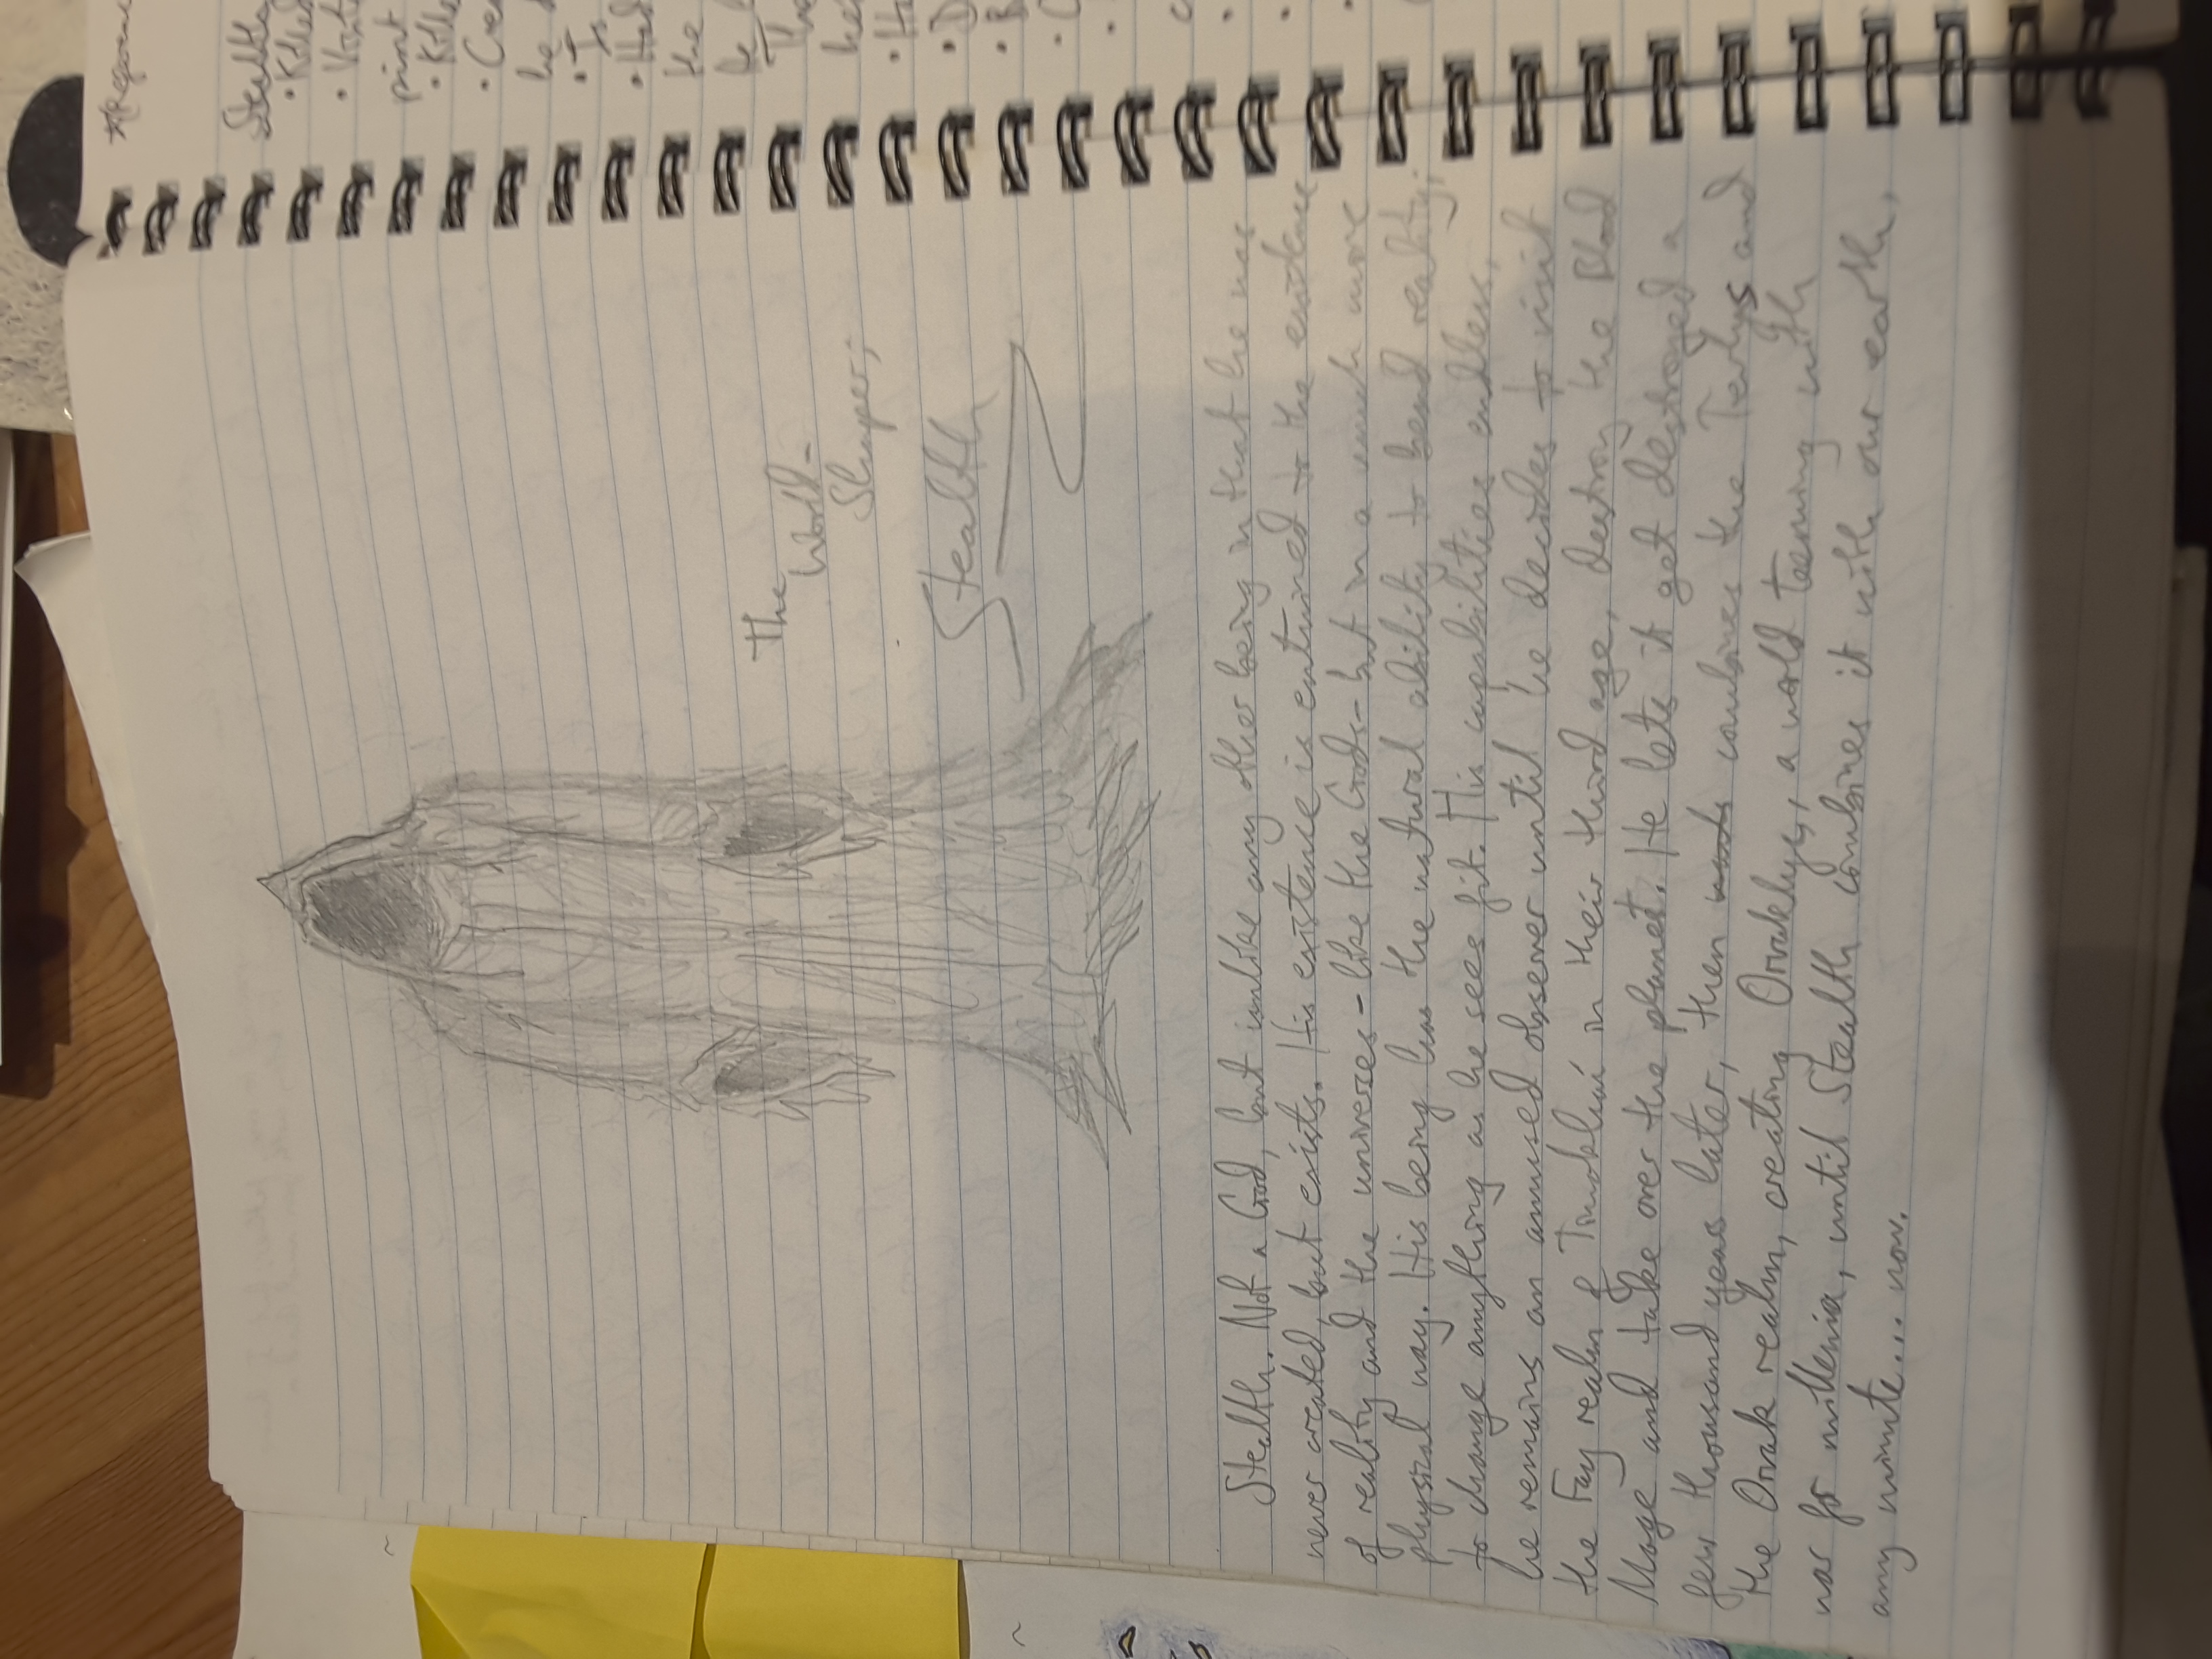 The
World-
Shaper;
Stealth
Stealth. Not a God, but unlike any other being in that he was
never created, but exists. His existence is entwined to the existence
of reality and the universes - like the Gods - but in a much more
physical way. His being has the natural ability to bend reality;
to change anything as he sees fit. His capabilities endless,
he remains an amused observer until he decides to visit
the Fay realm of in their third age, destroy the Blood
Mage and take over the planet. He lets it get destroyed a
few thousand years later, then combines the and
the Orvak realm, creating Orvaklys, a world teeming with
war for millenia, until Stealth combines it with our earth,
any minute... now.
Stealth
• Killed
print
he
the